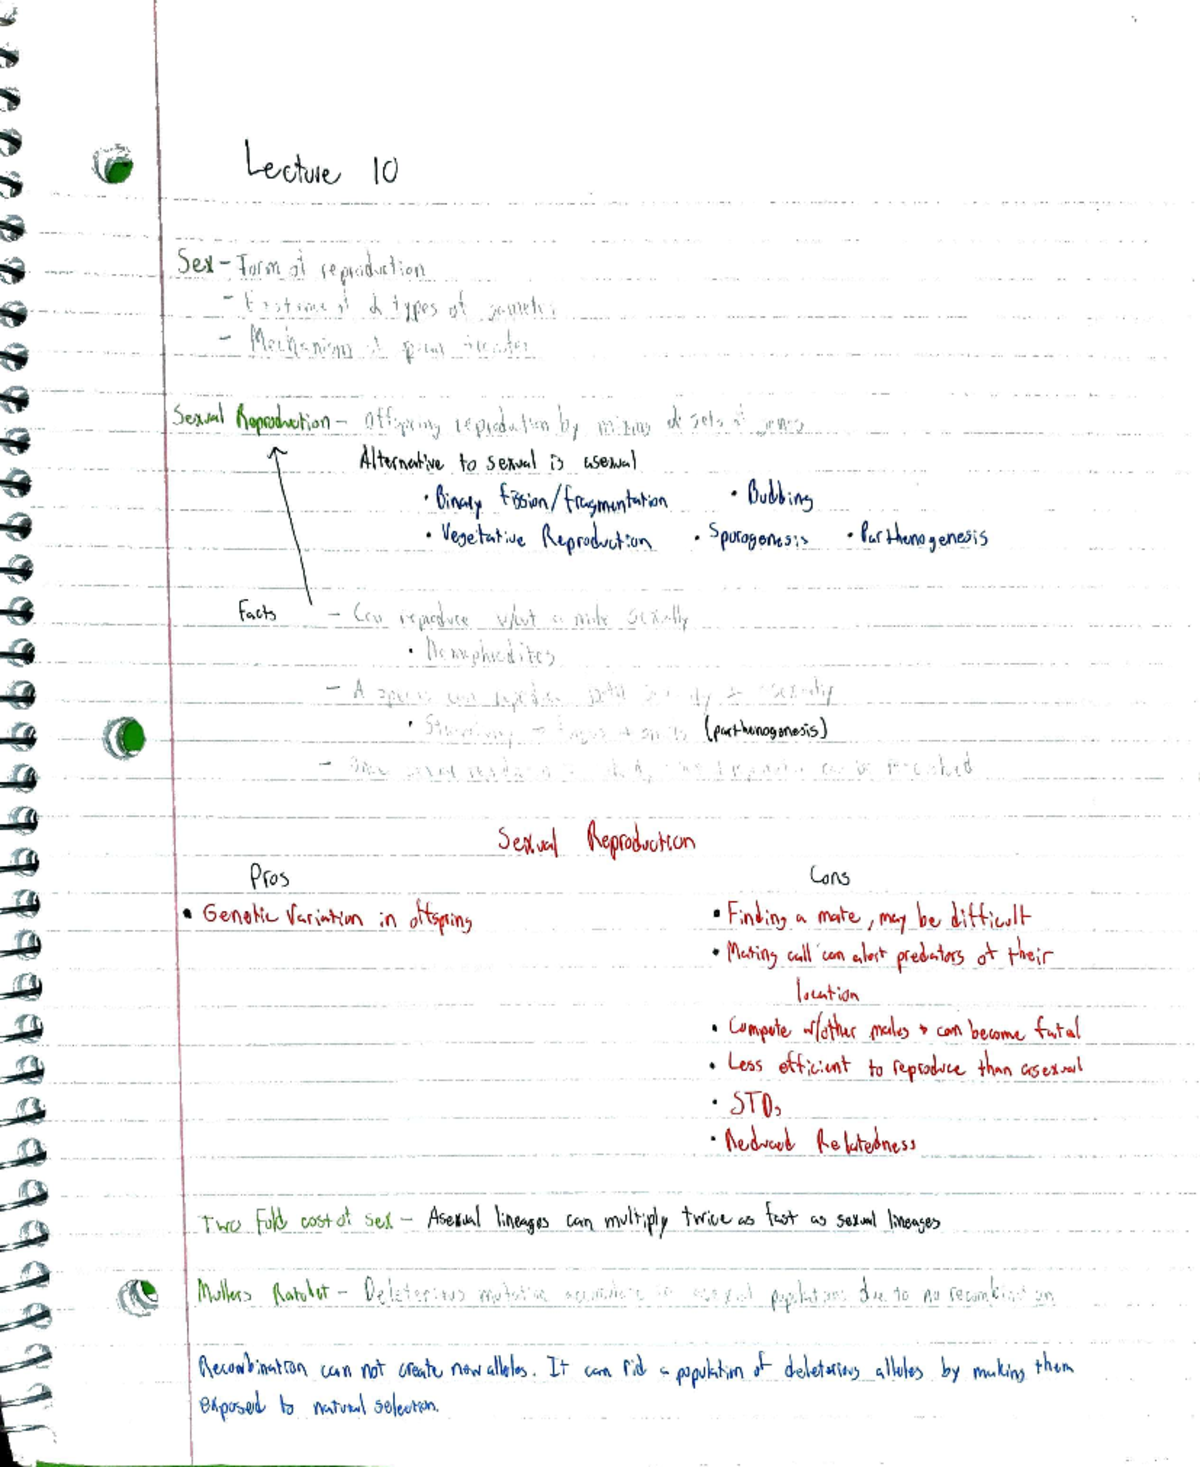 Lecture 10
Sex - Form of reproduction
- of 2 types of
- Mechanism of
Sexual Reproduction - Offspring reproduction by mixing 2 sets of genes
Alternative to sexual is asexual
• Binary fission/fragmentation • Budding
• Vegetative Reproduction • Sporogenesis • Parthenogenesis
Facts - Can reproduce w/out a mate sexually
•
- A species can reproduce both
• (parthenogenesis)
-
Sexual Reproduction
Pros Cons
• Genetic Variation in offspring • Finding a mate, may be difficult
• Mating call can alert predators of their
location
• Compete w/other males → can become fatal
• Less efficient to reproduce than asexual
• STDs
• Reduced Relatedness
Two Fold cost of sex - Asexual lineages can multiply twice as fast as sexual lineages
Mullers Ratchet - Deleterious mutation accumulate in asexual populations due to no recombination
Recombination can not create new alleles. It can rid a population of deleterious alleles by making them
exposed to natural selection.